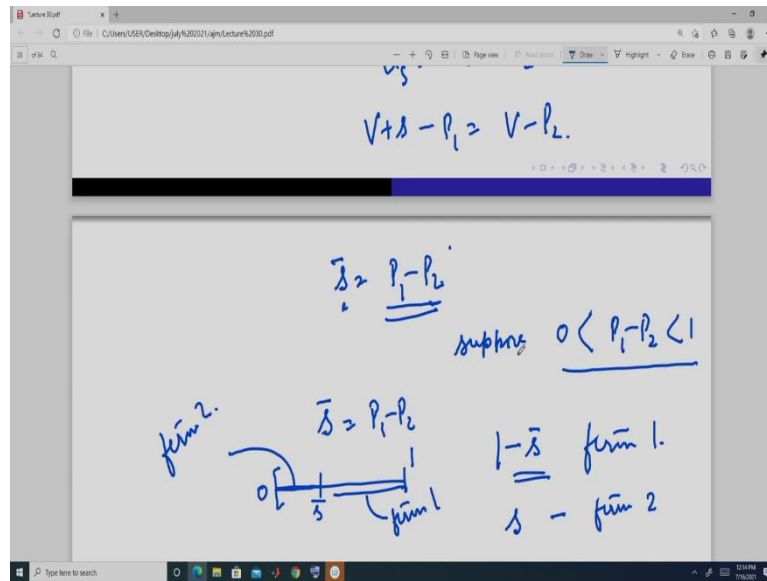 "Lecture 30.pdf
File | C:/Users/USER/Desktop/july%202021/ajm/Lecture%2030.pdf
28 of 34
Page view
Read aloud
Draw
Highlight
Erase
V+s - P₁ = V - P₂.
s̄ = P₁-P₂
suppose 0 < P₁-P₂ < 1
firm 2.
s̄ = P₁-P₂
1-s̄ firm 1.
0 s̄ 1
firm 1
s - firm 2
Type here to search
12:14 PM
7/16/2021